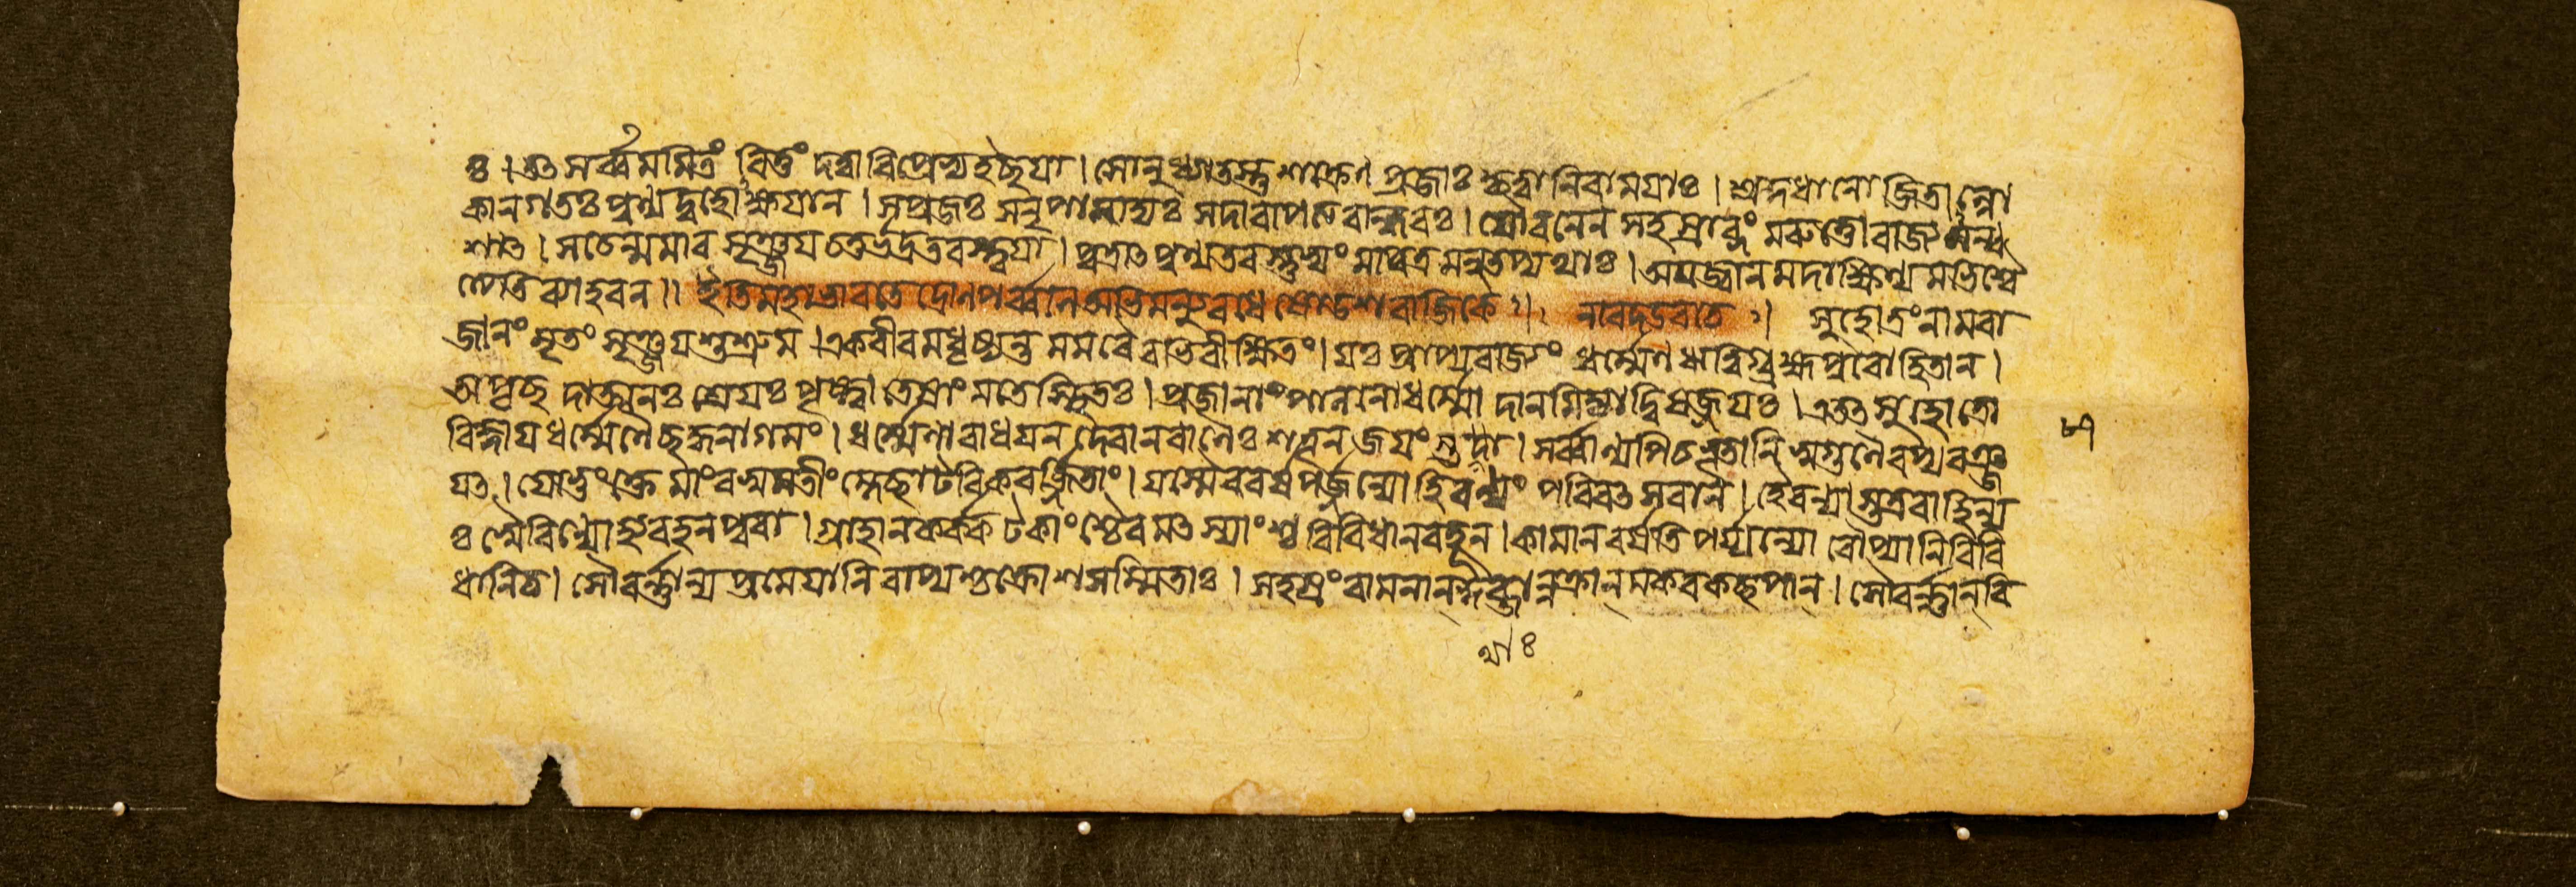 ঃ । তচ্চ সর্ব্বমমিত্রং বিত্তং দত্বা বিপ্রেভ্য ইছয়া। সোনুধ্যাতস্তু শক্রেণ প্রজাঃ কৃত্বা নিরাময়াঃ। শ্রদ্দধানো জিতান্লো
কান গতঃ পুণ্যদুহোক্ষয়ান । সপ্রজঃ সনৃপামাত্যঃ সদারাপত্যবান্ধবঃ। যৌবনেন সহস্রাব্দং মরুত্তো রাজ্যমন্ব
শাৎ । স চেন্মমার সৃঞ্জয় চতুর্ভদ্রতরস্ত্বয়া। পুত্রাৎ পুণ্যতরস্তুভ্যং মাপুত্রমনুতপ্যথাঃ । অযজ্বানমদাক্ষিণ্যমভিশ্বৈ
ত্যেতি ব্যাহরন ॥ ইতি মহাভারতে দ্রোণপর্ব্বণি অভিমন্যুবধে ষোডশরাজিকে ঃ। নারদ উবাচ ঃ। সুহোত্রং নাম রা
জানং মৃতং সৃঞ্জয় শুশ্রুম । একবীরমধৃষ্যন্তমমরৈরভিবীক্ষিতং। যঃ প্রাপ্য রাজ্যং ধর্ম্মেণ ঋত্বিগ্ব্রহ্মপুরোহিতান।
অপৃছদাত্মনঃ শ্রেয়ঃ পৃষ্ট্বা তেষাং মতে স্থিতঃ। প্রজানাং পালনো ধর্ম্মো দানমিজ্যা দ্বিষজ্জয়ঃ। এতৎ সুহোত্রো
বিজ্ঞায় ধর্ম্মেণৈছদ্ধনাগমং। ধর্ম্মেণারাধয়ন দেবান বাণৈঃ শত্রূন জয়ংস্তথা। সর্ব্বাণ্যপি চ ভূতানি স্বগুণৈরপ্যরঞ্জ
য়ৎ। যো ভুংক্তেমাং বসুমতীং ম্লেছাটবিকবর্জ্জিতাং। যস্মৈ ববর্ষ পর্জ্জন্যো হিরণ্যং পরিবৎসরান। হৈরণ্যাস্তত্র বাহিন্য
ঃ স্বৈরিণ্যো ব্যবহন পুরা। গ্রাহান কর্কটকাংশ্চৈব মৎস্যাংশ্চ বিবিধান বহূন। কামান বর্ষতি পর্জ্জন্যো রৌপ্যানি বিবি
ধানি চ। সৌবর্ণ্ণান্যপ্রমেয়ানি বাপ্যশ্চ ক্রোশসম্মিতাঃ । সহস্রং বামনান কুব্জান্নক্রান্ মকরকছপান্। সৌবর্ণ্ণান্ বি
৮৭